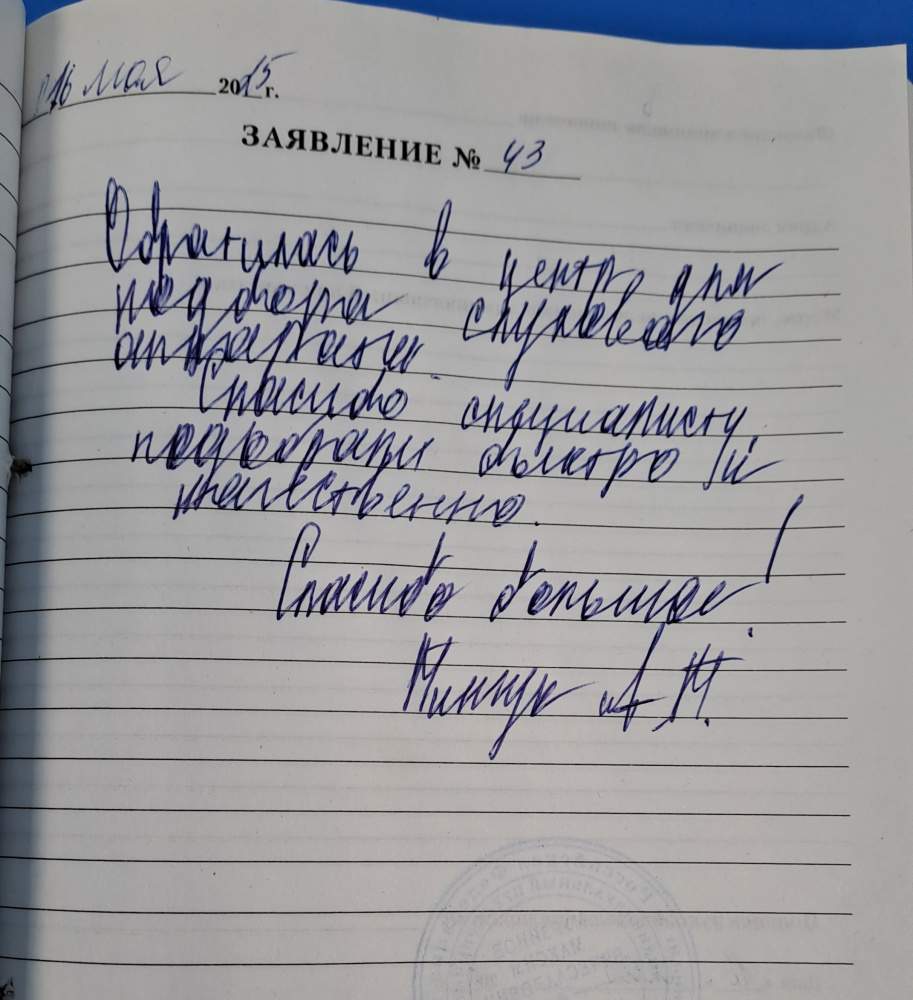 16 мая 2015 г.
ЗАЯВЛЕНИЕ № 43
Обратилась в центр для
подбора слухового
аппарата.
Спасибо специалисту,
подобрали быстро и
качественно.
Спасибо большое!